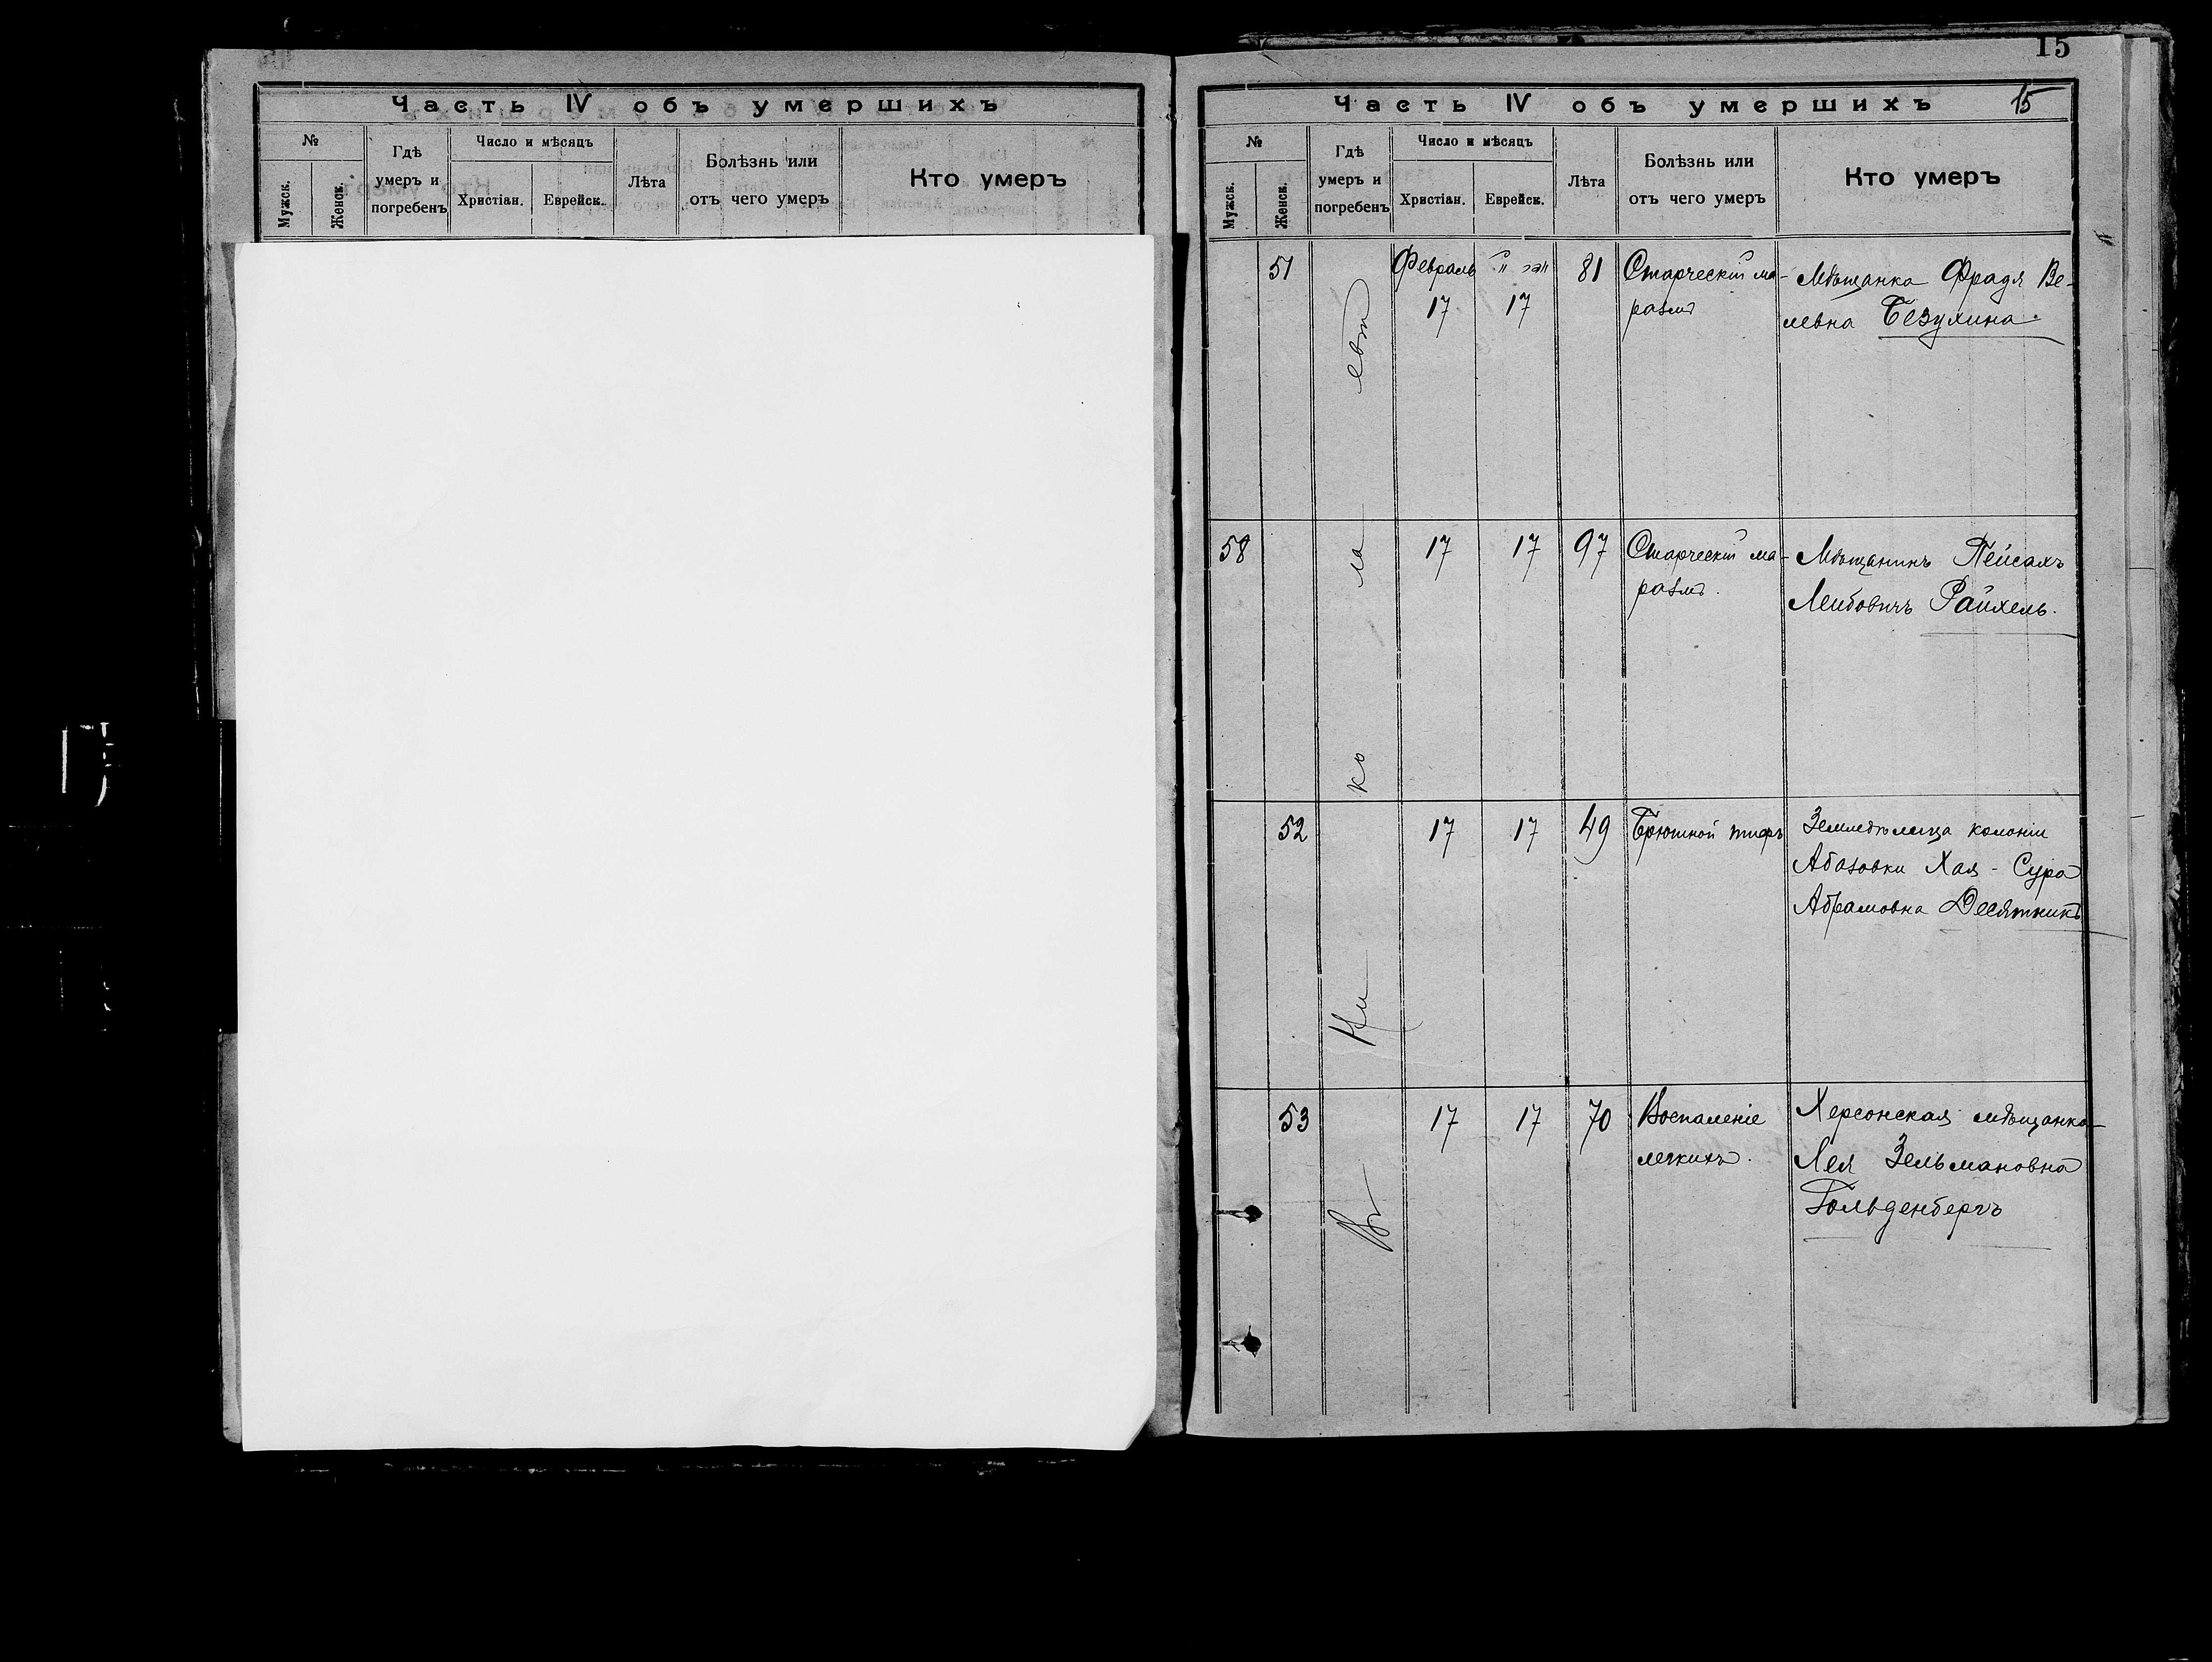 15
Часть IV объ умершихъ
№
Мужск.
Женск.
Гдѣ
умеръ и
погребенъ
Число и мѣсяцъ
Христіан.
Еврейск.
Лѣта
Болѣзнь или
отъ чего умеръ
Кто умеръ
Часть IV объ умершихъ 15
№
Мужск.
Женск.
Гдѣ
умеръ и
погребенъ
Число и мѣсяцъ
Христіан.
Еврейск.
Лѣта
Болѣзнь или
отъ чего умеръ
Кто умеръ
Въ Ни ко ла евѣ
51 Февраль 81 Старческій ма- Мѣщанка Фрадя Ве-
17 17 размъ левна
58 17 17 97 Старческій ма- Мѣщанинъ Пейсахъ
размъ. Лейбовичъ Райхель.
52 17 17 49 Брюшной тифъ Земледѣлица колоніи
Абазовки Хая - Сура
Абрамовна Десятникъ
53 17 17 70 Воспаленіе Херсонская мѣщанка
легкихъ. Лея Зельмановна
Гольденбергъ